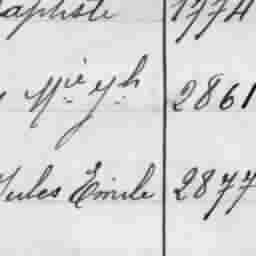 aptiste 1774
Mie Jh 2861
Jules Emile 2877